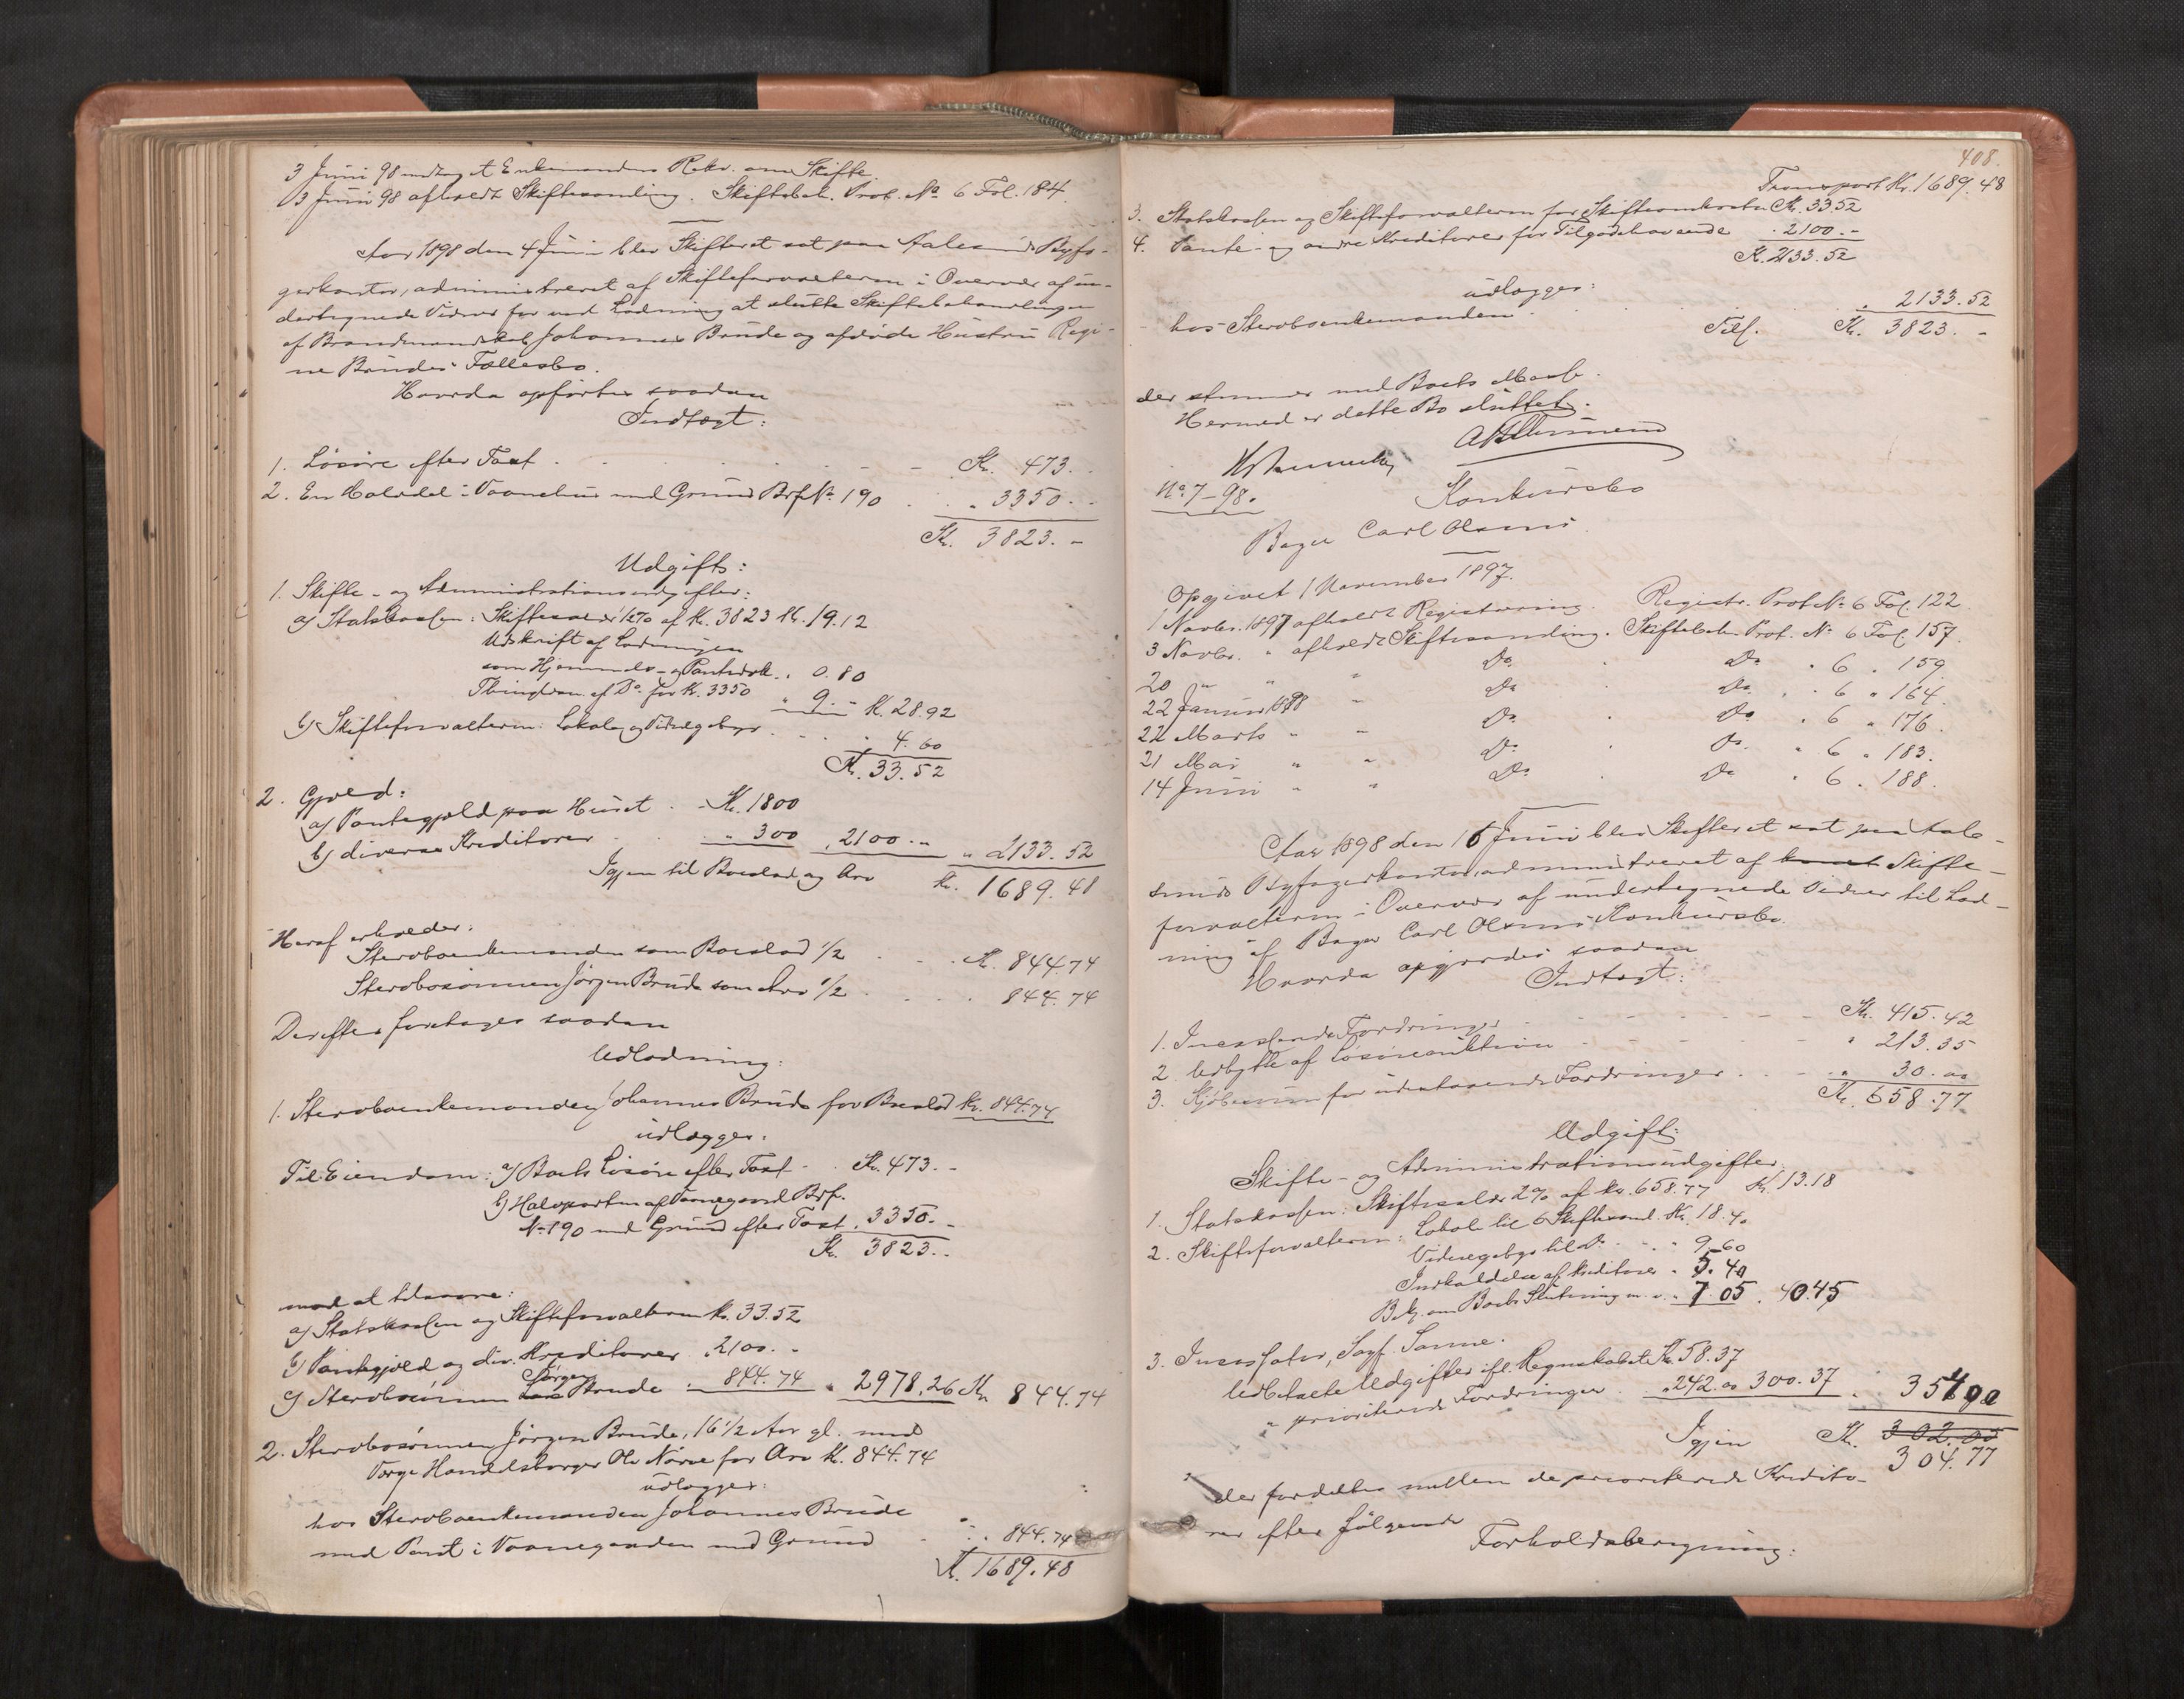 3 Juni 98 modtaget Enkemandens Rekv. om Skifte.
3 Juni 98 afholdt Skiftesamling. Skiftebeh. Prot. No 6 Fol. 184.
Aar 1898 den 4 Juni blev Skifteret sat paa Aalesunds Byfo-
gedkontor, administreret af Skifteforvalteren i Overvær af un-
dertegnede Vidner for ved Lodning at slutte Skiftebehandlingen
af Brandmandskab Johannes Brude og afdøde Hustru Regi-
ne Brudes Fællesbo.
Hvorda opførtes saadan
Indtægt:
1. Løsøre efter Taxt . . . Kr. 473. -
2. En Halvdel i Vaanehus med Grund Brf. No 190 . . " 3350. -
Kr. 3823. -
Udgift:
1. Skifte- og Administrationsudgifter:
a) Statskassen: Skiftesalær 1/2 % af Kr. 3823 Kr. 19.12
Udskrift af Lodningen
som Hjemmels- og Pantedok. " 0.80
Thinglæsn. af Do. for Kr. 3350 " 9. - Kr. 28.92
b) Skifteforvalteren: Lokale og Vidnegebyr . . . 4.60
Kr. 33.52
2. Gjæld:
a) Pantegjæld paa Huset . . Kr. 1800
b) diverse Kreditorer . . " 300 " 2100. - " 2133.52
Igjen til Boeslod og Arv Kr. 1689.48
Heraf erholder:
Stervboenkemanden som Boeslod 1/2 . . . Kr. 844.74
Stervbosønnen Jørgen Brude som Arv 1/2 . . . 844.74
Derefter foretoges saadan
Udlodning:
1. Stervboenkemanden Johannes Brude for Boeslod Kr. 844.74
udlægges:
Til Eiendom: a) Boets Løsøre efter Taxt . . Kr. 473. -
b) Halvparten af Vaanegaard Brf.
No 190 med Grund efter Taxt " 3350. -
Kr. 3823. -
mod at tilsvare:
a) Statskassen og Skifteforvalteren Kr. 33.52
b) Pantegjæld og div. Kreditorer " 2100. -
c) Stervbosønnen Jørgen Brude " 844.74 " 2978.26 Kr. 844.74
2. Stervbosønnen Jørgen Brude, 16 1/2 Aar gl. med
Værge Handelsborger Ole Nørve for Arv Kr. 844.74
udlægges:
hos Stervboenkemanden Johannes Brude
med Pant i Vaanegaarden med Grund . . . 844.74
Kr. 1689.48
408.
Transport Kr. 1689.48
3. Statskassen og Skifteforvalteren for Skifteomkostn. Kr. 33.52
4. Pante- og andre Kreditorer for Tilgodehavende . 2100. -
Kr. 2133.52
udlægges:
hos Stervboenkemanden . . . " 2133.52
Tils. Kr. 3823. -
der stemmer med Boets Masse.
Hermed er dette Bo sluttet.
No 7-98.
Konkursbo
Bager Carl Olsens
Opgivet 1 November 1897.
1 Novbr. 1897 afholdt Registrering. Registr. Prot. No 6 Fol. 122.
3 Novbr. " afholdt Skiftesamling. Skiftebeh. Prot. No 6 Fol. 157.
20 " " " Do. . Do. " 6 " 159.
22 Januar 1898 " Do. Do. " 6 " 164.
22 Marts " " Do. . Do. " 6 " 176.
21 Mai " " Do. Do. " 6 " 183.
14 Juni " " Do. . Do. " 6 " 188.
Aar 1898 den 16 Juni blev Skifteret sat paa Aale-
sunds Byfogedkontor, administreret af Skifte-
forvalteren i Overvær af undertegnede Vidner til Lod-
ning af Bager Carl Olsens Konkursbo.
Hvorda opgjordes saadan
Indtægt:
1. Incasserede Fordringer . . . Kr. 415.42
2. Udbytte af Løsøreauktion . . . " 213.35
3. Kjøbesum for udestaaende Fordringer . . . " 30.00
Kr. 658.77
Udgift:
Skifte- og Administrationsudgifter:
1. Statskassen: Skiftesalær 2% af Kr. 658.77 Kr. 13.18
2. Skifteforvalteren: Lokale til 6 Skiftesaml. Kr. 18.40
Vidnegebyr til Do. . . " 9.60
Indkaldelse af Kreditorer " 5.40
Bekj. om Boets Slutning m.v. " 7.05 . 40.45
3. Incassator, Sagf. Sanne.
Udbetalte Udgifter ifl. Regnskabet Kr. 58.37
" prioriterede Fordringer . . " 242.00 300.37 . 354.00
Igjen Kr. 302.05
304.77
der fordeltes mellem de prioriterede Kredito-
rer efter følgende
Forholdsberegning: